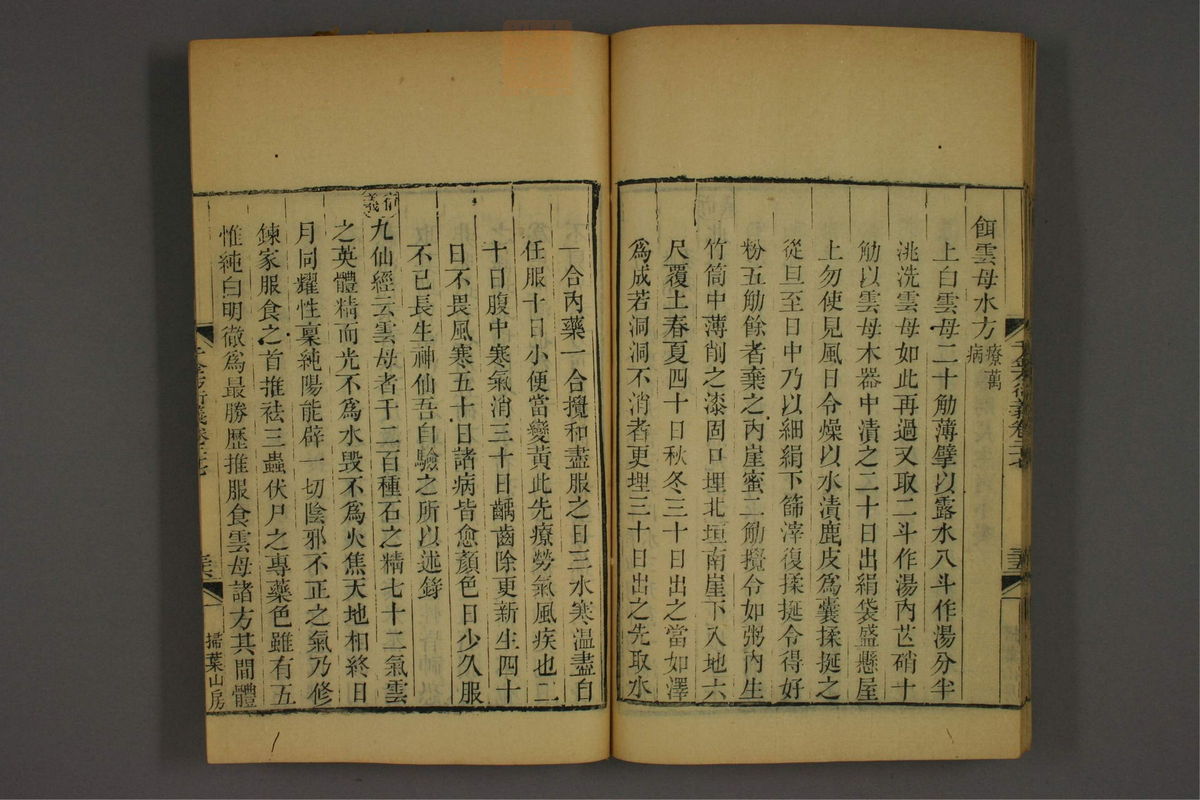 餌雲母水方療萬病
上白雲母二十觔薄擘以露水八斗作湯分半
洮洗雲母如此再過又取二斗作湯內芒硝十
觔以雲母木器中漬之二十日出絹袋盛懸屋
上勿使見風日令燥以水漬鹿皮為囊揉挻之
從旦至日中乃以細絹下篩滓復揉挻令得好
粉五觔餘者棄之內崖蜜二觔攪令如粥內生
竹筒中薄削之漆固口埋北垣南崖下入地六
尺覆土春夏四十日秋冬三十日出之當如澤
為成若洞洞不消者更埋三十日出之先取水
一合內藥一合攪和盡服之日三水寒溫盡自
任服十日小便當變黃此先療勞氣風疾也二
十日腹中寒氣消三十日齲齒除更新生四十
日不畏風寒五十日諸病皆愈顏色日少久服
不已長生神仙吾自驗之所以述錄
衍義九仙經云雲母者千二百種石之精七十二氣雲
之英體精而光不為水毀不為火焦天地相終日
月同耀性稟純陽能辟一切陰邪不正之氣乃修
鍊家服食之首推袪三蟲伏尸之專藥色雖有五
惟純白明徹為最勝歷推服食雲母諸方其間體
千金方衍義卷二十七
掃葉山房